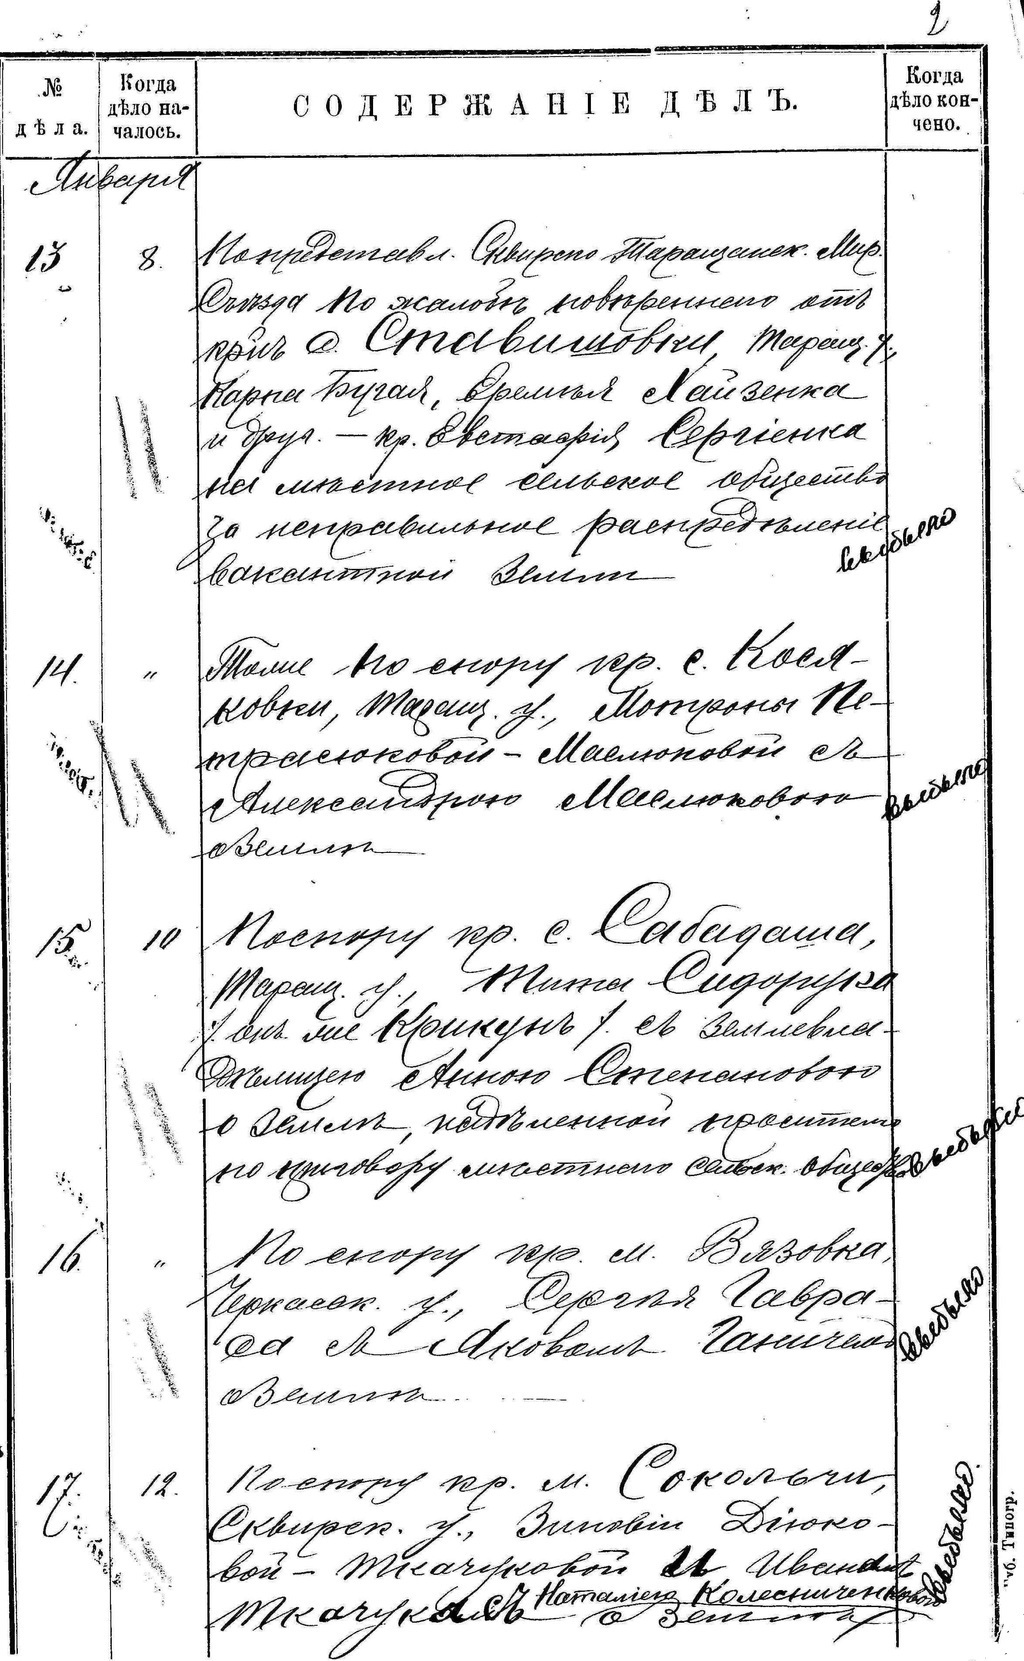 2
№ дѣла.
Когда дѣло на-
чалось.
СОДЕРЖАНІЕ ДѢЛЪ.
Когда дѣло кон-
чено.
Января
13 8. По представл. Сквирско Таращанск. Мир.
Съѣзда по жалобѣ повѣреннаго отъ
кр-нъ с. Ставишовки, Таращ. у.,
Карпа Бугая, Еремѣя Хайзенка
и друг. — кр. Евстафія Сергіенка
на мѣстное сельское общество
за неправильное распредѣленіе
вакантной земли
выбыло
14. " Тоже по спору кр. с. Кося-
ковки, Таращ. у., Мотроны Пе-
трасюковой - Маслюковой съ
Александрою Маслюковою
о землѣ
выбыло
15. 10 По спору кр. с. Сабадаша,
Таращ. у., Тита Сидорука
/. онъ же Крикунъ /. съ землевла-
дѣлицею Анною Степановою
о землѣ, надѣленной просителю
по приговору мѣстнаго сельск. общества
выбыло
16. " По спору кр. м. Вязовка,
Черкасск. у., Сергѣя Гавра-
са съ Яковомъ
о землѣ
выбыло
17. 12. По спору кр. м. Сокольчи,
Сквирск. у., Зиновіи Дзюко-
вой - Ткачуковой и Ивана
Ткачука съ Наталіею Колесниченковою
о землѣ
выбыло
Губ. Типогр.